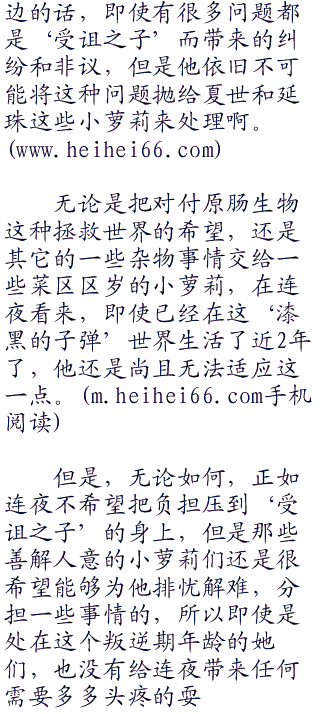 边的话，即使有很多问题都
是‘受诅之子’而带来的纠
纷和非议，但是他依旧不可
能将这种问题抛给夏世和延
珠这些小萝莉来处理啊。
(www.heihei66.com)
无论是把对付原肠生物
这种拯救世界的希望，还是
其它的一些杂物事情交给一
些菜区区岁的小萝莉，在连
夜看来，即使已经在这‘漆
黑的子弹’世界生活了近2年
了，他还是尚且无法适应这
一点。(m.heihei66.com手机
阅读)
但是，无论如何，正如
连夜不希望把负担压到‘受
诅之子’的身上，但是那些
善解人意的小萝莉们还是很
希望能够为他排忧解难，分
担一些事情的，所以即使是
处在这个叛逆期年龄的她
们，也没有给连夜带来任何
需要多多头疼的耍